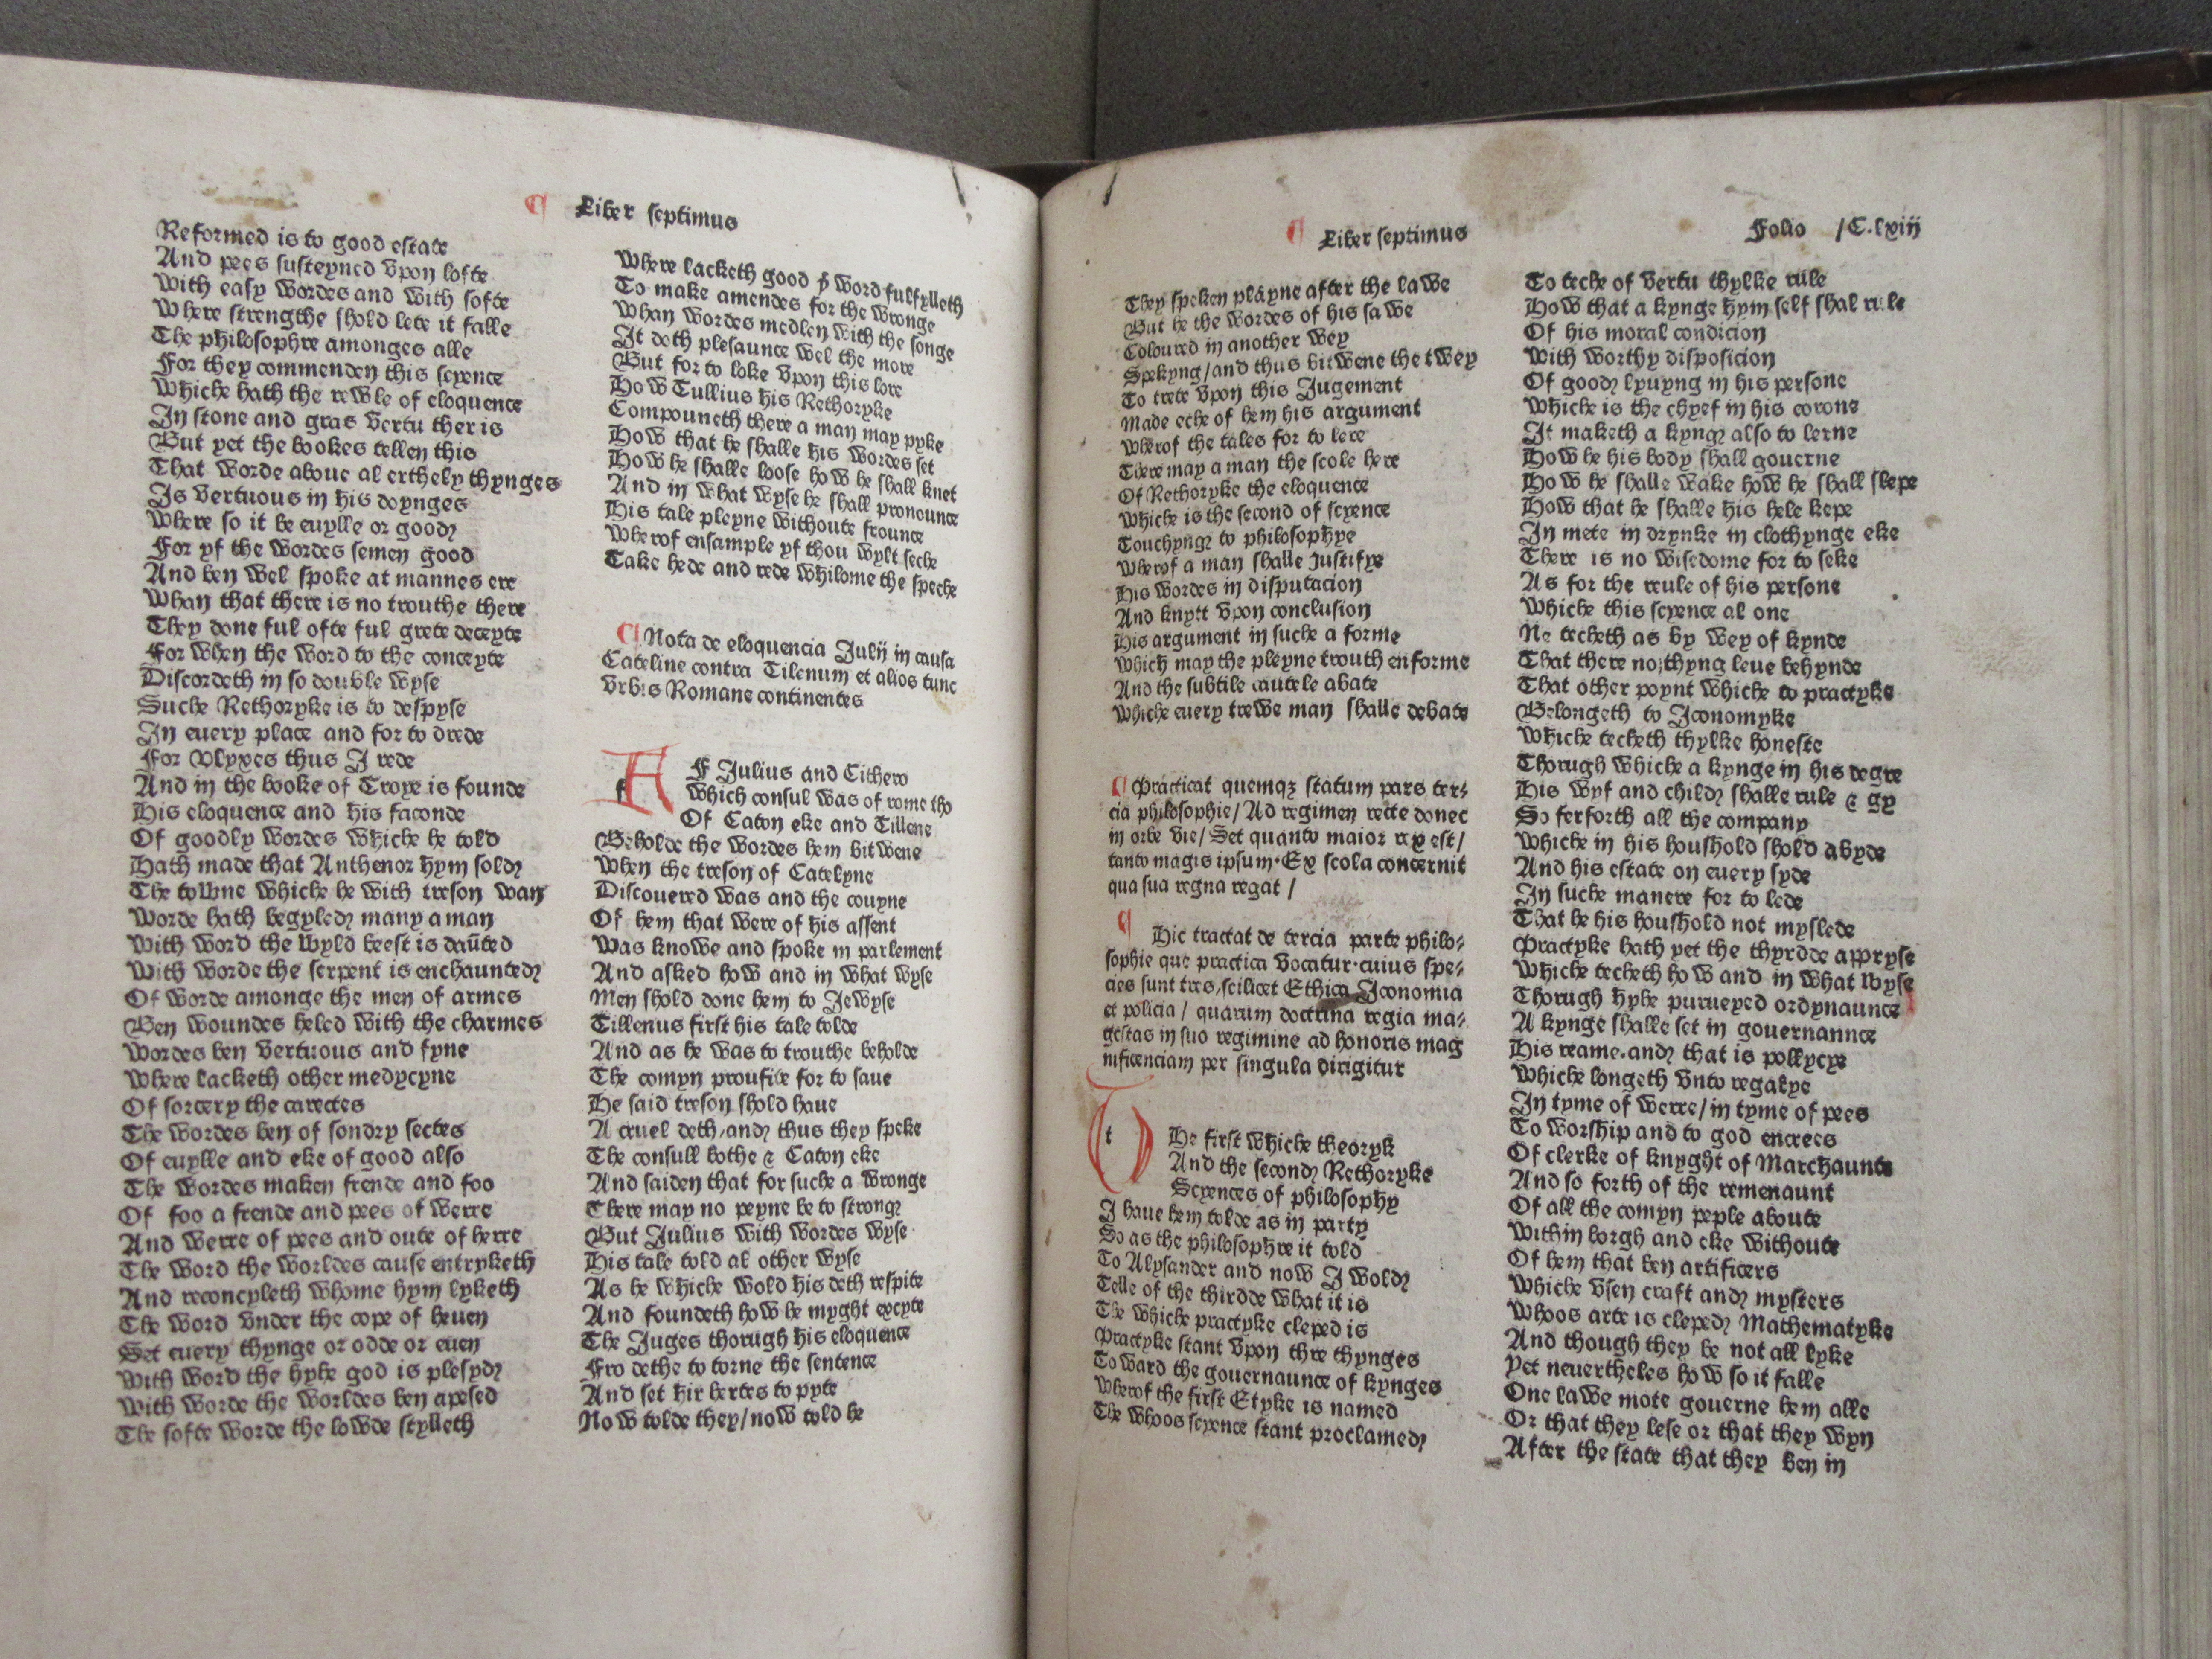 ¶ Liber septimus
Reformed is to good estate
And pees susteyned vpon lofte
With easy wordes and with softe
Where strengthe shold lete it falle
The philosophre amonges alle
For they commenden this scyence
Whiche hath the rewle of eloquence
In stone and gras vertu ther is
But yet the bookes tellen this
That worde aboue al erthely thynges
Is vertuous in his doynges
Where so it be euylle or good
For yf the wordes semen good
And ben wel spoke at mannes ere
Whan that there is no trouthe there
They done ful ofte ful grete deceyte
For when the word to the conceyte
Discordeth in so double wyse
Suche Rethoryke is to despyse
In euery place and for to drede
For Vlyxes thus I rede
And in the booke of Troye is founde
His eloquence and his faconde
Of goodly wordes whiche he told
Hath made that Anthenor hym sold
The towne whiche he with treson wan
Worde hath begyled many a man
With word the wyld beest is daūted
With worde the serpent is enchaunted
Of worde amonge the men of armes
Ben woundes heled with the charmes
Wordes ben vertuous and fyne
Where lacketh other medycyne
Of sorcery the carectes
The wordes ben of sondry sectes
Of euylle and eke of good also
The wordes maken frende and foo
Of foo a frende and pees of werre
And werre of pees and oute of herre
The word the worldes cause entryketh
And reconcyleth whome hym lyketh
The word vnder the cope of heuen
Set euery thynge or odde or euen
With word the hyhe god is plesyd
With worde the worldes ben apesed
The softe worde the lowde stylleth
Where lacketh good þe word fulfylleth
To make amendes for the wronge
Whan wordes medlen with the songe
It doth plesaunce wel the more
But for to loke vpon this lore
How Tullius his Rethoryke
Compouneth there a man may pyke
How that he shalle his wordes set
How he shalle loose how he shall knet
And in what wyse he shall pronounce
His tale pleyne withoute frounce
Wherof ensample yf thou wylt seche
Take hede and rede whilome the speche
¶ Nota de eloquencia Julij in causa
Cateline contra Cilenum et alios tunc
vrbis Romane continentes
f F Julius and Cithero
Which consul was of rome tho
Of Caton eke and Cillene
Beholde the wordes hem bitwene
When the treson of Catelyne
Discouered was and the couyne
Of hem that were of his assent
Was knowe and spoke in parlement
And asked how and in what wyse
Men shold done hem to Jewyse
Cillenus first his tale tolde
And as he was to trouthe beholde
The comyn proufite for to saue
He said treson shold haue
A cruel deth/and thus they speke
The consull bothe & Caton eke
And saiden that for suche a wronge
There may no peyne be to strong
But Julius with wordes wyse
His tale told al other wyse
As he whiche wold his deth respite
And foundeth how he myght excyte
The Juges thorugh his eloquence
Fro dethe to torne the sentence
And set hir hertes to pyte
Now tolde they/now told he
¶ Liber septimus
Folio /C.lxiij
They speken playne after the lawe
But he the wordes of his sawe
Coloured in another wey
Spekyng/and thus bitwene the twey
To trete vpon this Jugement
Made eche of hem his argument
Wherof the tales for to lere
There may a man the scole here
Of Rethoryke the eloquence
Whiche is the second of scyence
Touchyng to philosophye
Wherof a man shalle Justifye
His wordes in disputacion
And knytt vpon conclusion
His argument in suche a forme
Which may the pleyne trouth enforme
And the subtile cautele abate
Whiche euery trewe man shalle debate
¶ Practicat quemqꝫ statum pars ter-
cia philosophie/ Ad regimen recte donec
in orbe vie/ Set quanto maior rex est/
tanto magis ipsum. Ex scola concernit
qua sua regna regat /
¶ Hic tractat de tercia parte philo-
sophie que practica vocatur. cuius spe-
cies sunt tres, scilicet Ethica Iconomia
et policia/ quarum doctrina regia ma-
gestas in suo regimine ad honoris mag
nificenciam per singula dirigitur
t He first whiche theoryk
And the second Rethoryke
Scyences of philosophy
I haue hem tolde as in party
So as the philosophre it told
To Alysander and now I wold
Telle of the thirdde what it is
The whiche practyke cleped is
Practyke stant vpon thre thynges
Toward the gouernaunce of kynges
Wherof the first Etyke is named
The whoos scyence stant proclamed
To teche of vertu thylke rule
How that a kynge hym self shal rule
Of his moral condicion
With worthy disposicion
Of good lyuyng in his persone
Whiche is the chyef in his corone
It maketh a kyng also to lerne
How he his body shall gouerne
How he shalle wake how he shall slepe
How that he shalle his hele kepe
In mete in drynke in clothynge eke
There is no wisedome for to seke
As for the reule of his persone
Whiche this scyence al one
Ne techeth as by wey of kynde
That there no thyng leue behynde
That other poynt whiche to practyke
Belongeth to Iconomyke
Whiche techeth thylke honeste
Thorugh whiche a kynge in his degre
His wyf and child shalle rule & gy
So ferforth all the company
Whiche in his houshold shold abyde
And his estate on euery syde
In suche manere for to lede
That he his houshold not myslede
Practyke hath yet the thyrdde appryse
Whiche techeth how and in what wyse
Thorugh hyhe purueyed ordynaunce
A kynge shalle set in gouernannce
His reame.and that is pollycye
Whiche longeth vnto regalye
In tyme of werre/in tyme of pees
To worship and to god encrees
Of clerke of knyght of Marchaunte
And so forth of the remenaunt
Of all the comyn peple aboute
Within borgh and eke withoute
Of hem that ben artificers
Whiche vsen craft and mysters
Whoos arte is cleped Mathematyke
And though they be not all lyke
Yet neuertheles how so it falle
One lawe mote gouerne hem alle
Or that they lese or that they wyn
After the state that they ben in